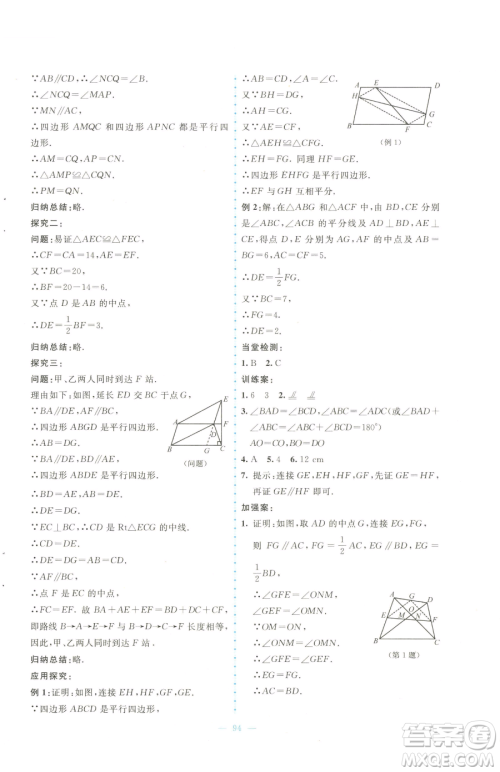 ∵AB∥CD,∴∠NCQ=∠B.
∴∠NCQ=∠MAP.
∵MN∥AC,
∴四边形 AMQC 和四边形 APNC 都是平行四边形.
∴AM=CQ,AP=CN.
∴△AMP≌△CQN.
∴MP=QN.
归纳总结:略.
探究二:
问题:易证△AEC≌△FEC.
∴CF=CA=14,AE=EF.
又∵BC=20,
∴BF=20-14=6.
又∵点 D 是 AB 的中点,
∴DE=1/2BF=3.
归纳总结:略.
探究三:
问题:甲、乙两人同时到达 F 站.
理由如下:如图,延长 ED 交 BC 于点 G.
∵BA∥DE,AF∥BC,
∴四边形 ABGD 是平行四边形.
∴AB=DG.
∵BA∥DE,BD∥AE,
∴四边形 ABDE 是平行四边形.
∴BD=AE,AB=DE.
∴DE=DG.
又∵EC⊥BC,
∴CD 是 Rt△ECG 的中线.
∴CD=DE.
又∵DF⊥EC,
∴点 F 是 EC 的中点.
∴CF=EF.
∴BA+AE+EF=BD+DC+CF.
即路线 B→A→E→F 与 B→D→C→F 长度相等,
因此,甲、乙两人同时到达 F 站.
归纳总结:略.
应用探究:
例 1:证明:如图,连接 EH,HF,FG,GE.
∵四边形 ABCD 是平行四边形,
A
B
C
D
E
F
G
(问题)
∴AB=CD,∠A=∠C.
又∵BH=DG,
∴AH=CG.
又∵AE=CF,
∴△AEH≌△CFG.
∴EH=FG.同理 HF=GE.
∴四边形 EHFG 是平行四边形.
∴EF 与 GH 互相平分.
A
E
D
H
G
B
F
C
(例 1)
例 2:解:在△ABG 和△ACF 中,由 BD,CE
分别是∠B,∠C 的平分线及 AG⊥BD,
AF⊥CE,得 D,E 是 AG,AF 的中点及 BG=
AB=6,CF=AC=5.
∴DE=1/2FG.
又∵BC=7,
∴FG=4.
∴DE=2.
当堂检测:
1. B 2. C
训练案:
1. 6 3 2. ∥ ∥
3. ∠BAD=∠BCD,∠ABC=∠ADC(或∠BAD+
∠ABC=180°,∠BCD+∠ABC=180°)
AO=CO,BO=DO
4. A 5. 4 6. 12 cm
7. 提示:连接 GE,EH,HF,GF,GH,EF,
再证 GE∥HF 即可.
加强案:
1. 证明:如图,取 AD 的中点 G,连接 GE,GF,
则 FG∥AC,FG=1/2AC,EG∥BD,EG=
1/2BD,
∴∠GFE=∠ONM,
∠GEF=∠OMN.
又∵OM=ON,
∴∠OMN=∠ONM.
∴∠GFE=∠GEF.
∴GE=GF.
∴AC=BD.
A
G
D
E
F
M
N
O
B
C
(第 1 题)
94